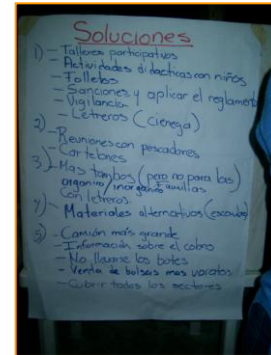 Soluciones
1) - Talleres participativos
- Actividades didacticas con niños
- Folletos
- Sanciones y aplicar el reglamento
- Vigilancia
- Letreros (cienega)
2) - Reuniones con pescadores
- Cartelones
3) - Mas tambos (pero no para las)
organico/inorganico familias
Con letreros.
4) - Materiales alternativos (escoba)
5) - Camión más grande
- Información sobre el cobro
- No llevarse los botes
- Venta de bolsas mas varatas
- Cubrir todos los sectores